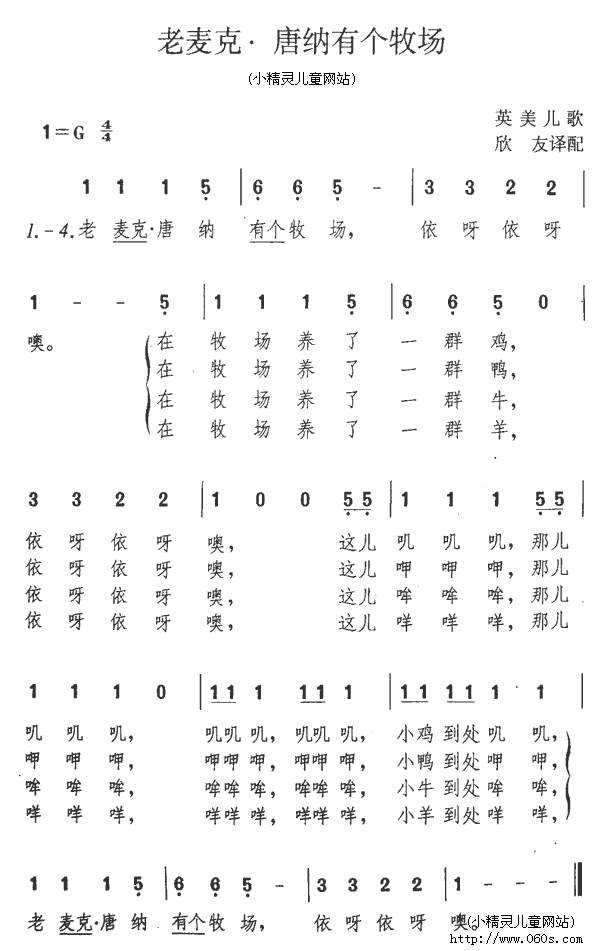 老麦克·唐纳有个牧场
(小精灵儿童网站)
1=G 4/4
英美儿歌
欣 友译配
1 1 1 5 | 6 6 5 - | 3 3 2 2 |
1.-4.老 麦克·唐 纳 有个牧 场, 依 呀 依 呀
1 - - 5 | 1 1 1 5 | 6 6 5 0 |
噢。 在 牧 场 养 了 一 群 鸡,
在 牧 场 养 了 一 群 鸭,
在 牧 场 养 了 一 群 牛,
在 牧 场 养 了 一 群 羊,
3 3 2 2 | 1 0 0 5 5 | 1 1 1 5 5 |
依 呀 依 呀 噢, 这儿 叽 叽 叽, 那儿
依 呀 依 呀 噢, 这儿 呷 呷 呷, 那儿
依 呀 依 呀 噢, 这儿 哞 哞 哞, 那儿
依 呀 依 呀 噢, 这儿 咩 咩 咩, 那儿
1 1 1 0 | 1 1 1 1 1 1 | 1 1 1 1 1 1 |
叽 叽 叽, 叽叽 叽, 叽叽 叽, 小鸡 到处 叽 叽,
呷 呷 呷, 呷呷 呷, 呷呷 呷, 小鸭 到处 呷 呷,
哞 哞 哞, 哞哞 哞, 哞哞 哞, 小牛 到处 哞 哞,
咩 咩 咩, 咩咩 咩, 咩咩 咩, 小羊 到处 咩 咩,
1 1 1 5 | 6 6 5 - | 3 3 2 2 | 1 - - - ‖
老 麦克·唐 纳 有个牧 场, 依 呀 依 呀 噢。
(小精灵儿童网站)
http://www.060s.com/